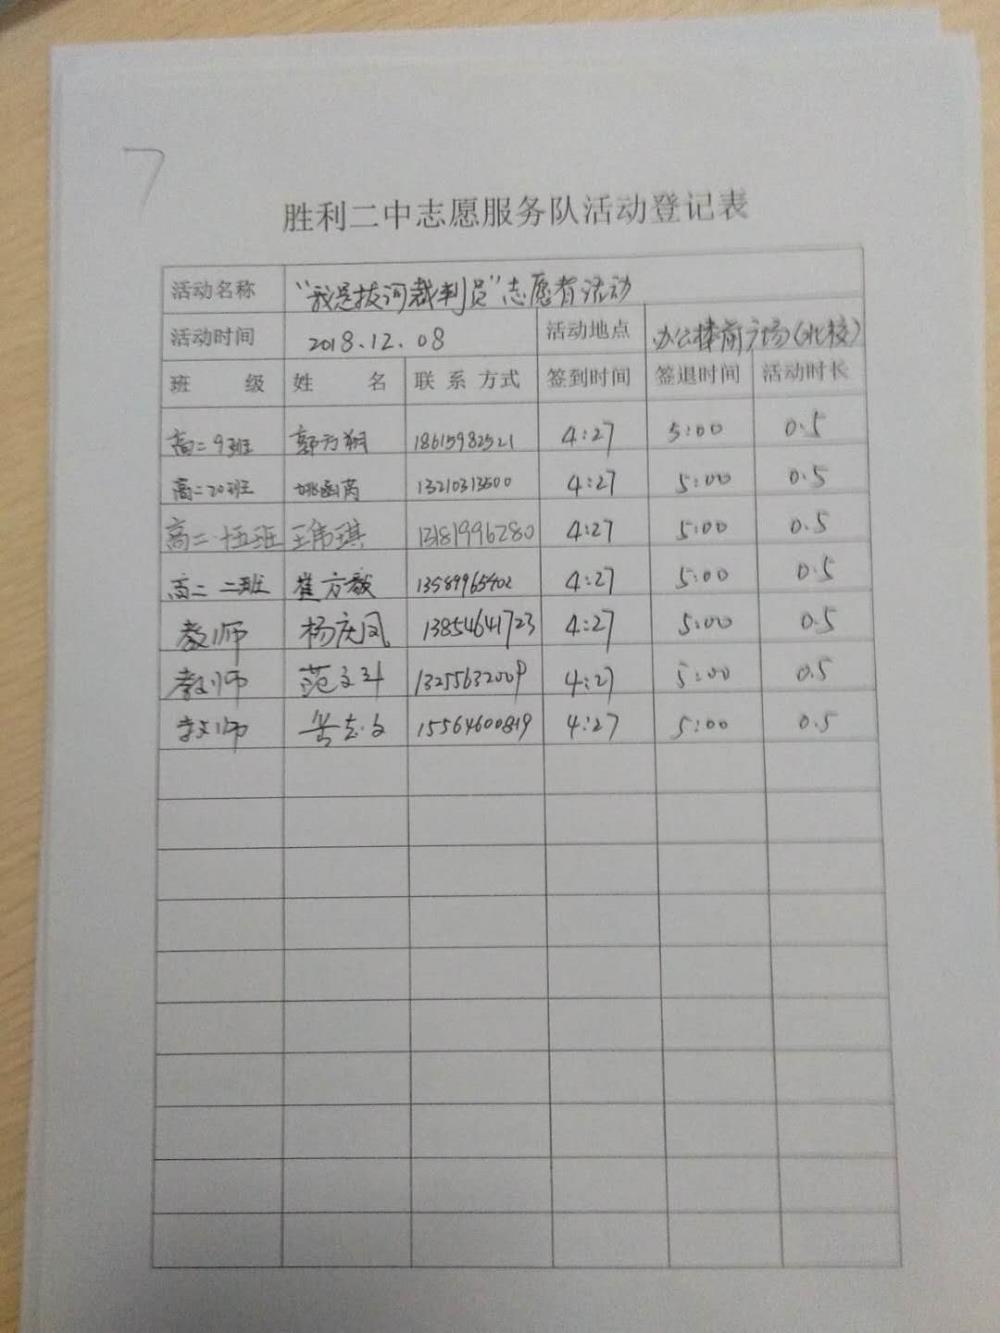 7
胜利二中志愿服务队活动登记表
活动名称 "我是拔河裁判员"志愿者活动
活动时间 2018.12.08 活动地点 办公楼前广场(北校)
班 级 姓 名 联系方式 签到时间 签退时间 活动时长
高二9班 18615982521 4:27 5:00 0.5
高二20班 13210313500 4:27 5:00 0.5
高二十五班 王伟琪 13181996280 4:27 5:00 0.5
高二二班 崔方毅 13589965402 4:27 5:00 0.5
教师 杨庆凤 13854641723 4:27 5:00 0.5
教师 范文斗 13255632009 4:27 5:00 0.5
教师 15564600819 4:27 5:00 0.5